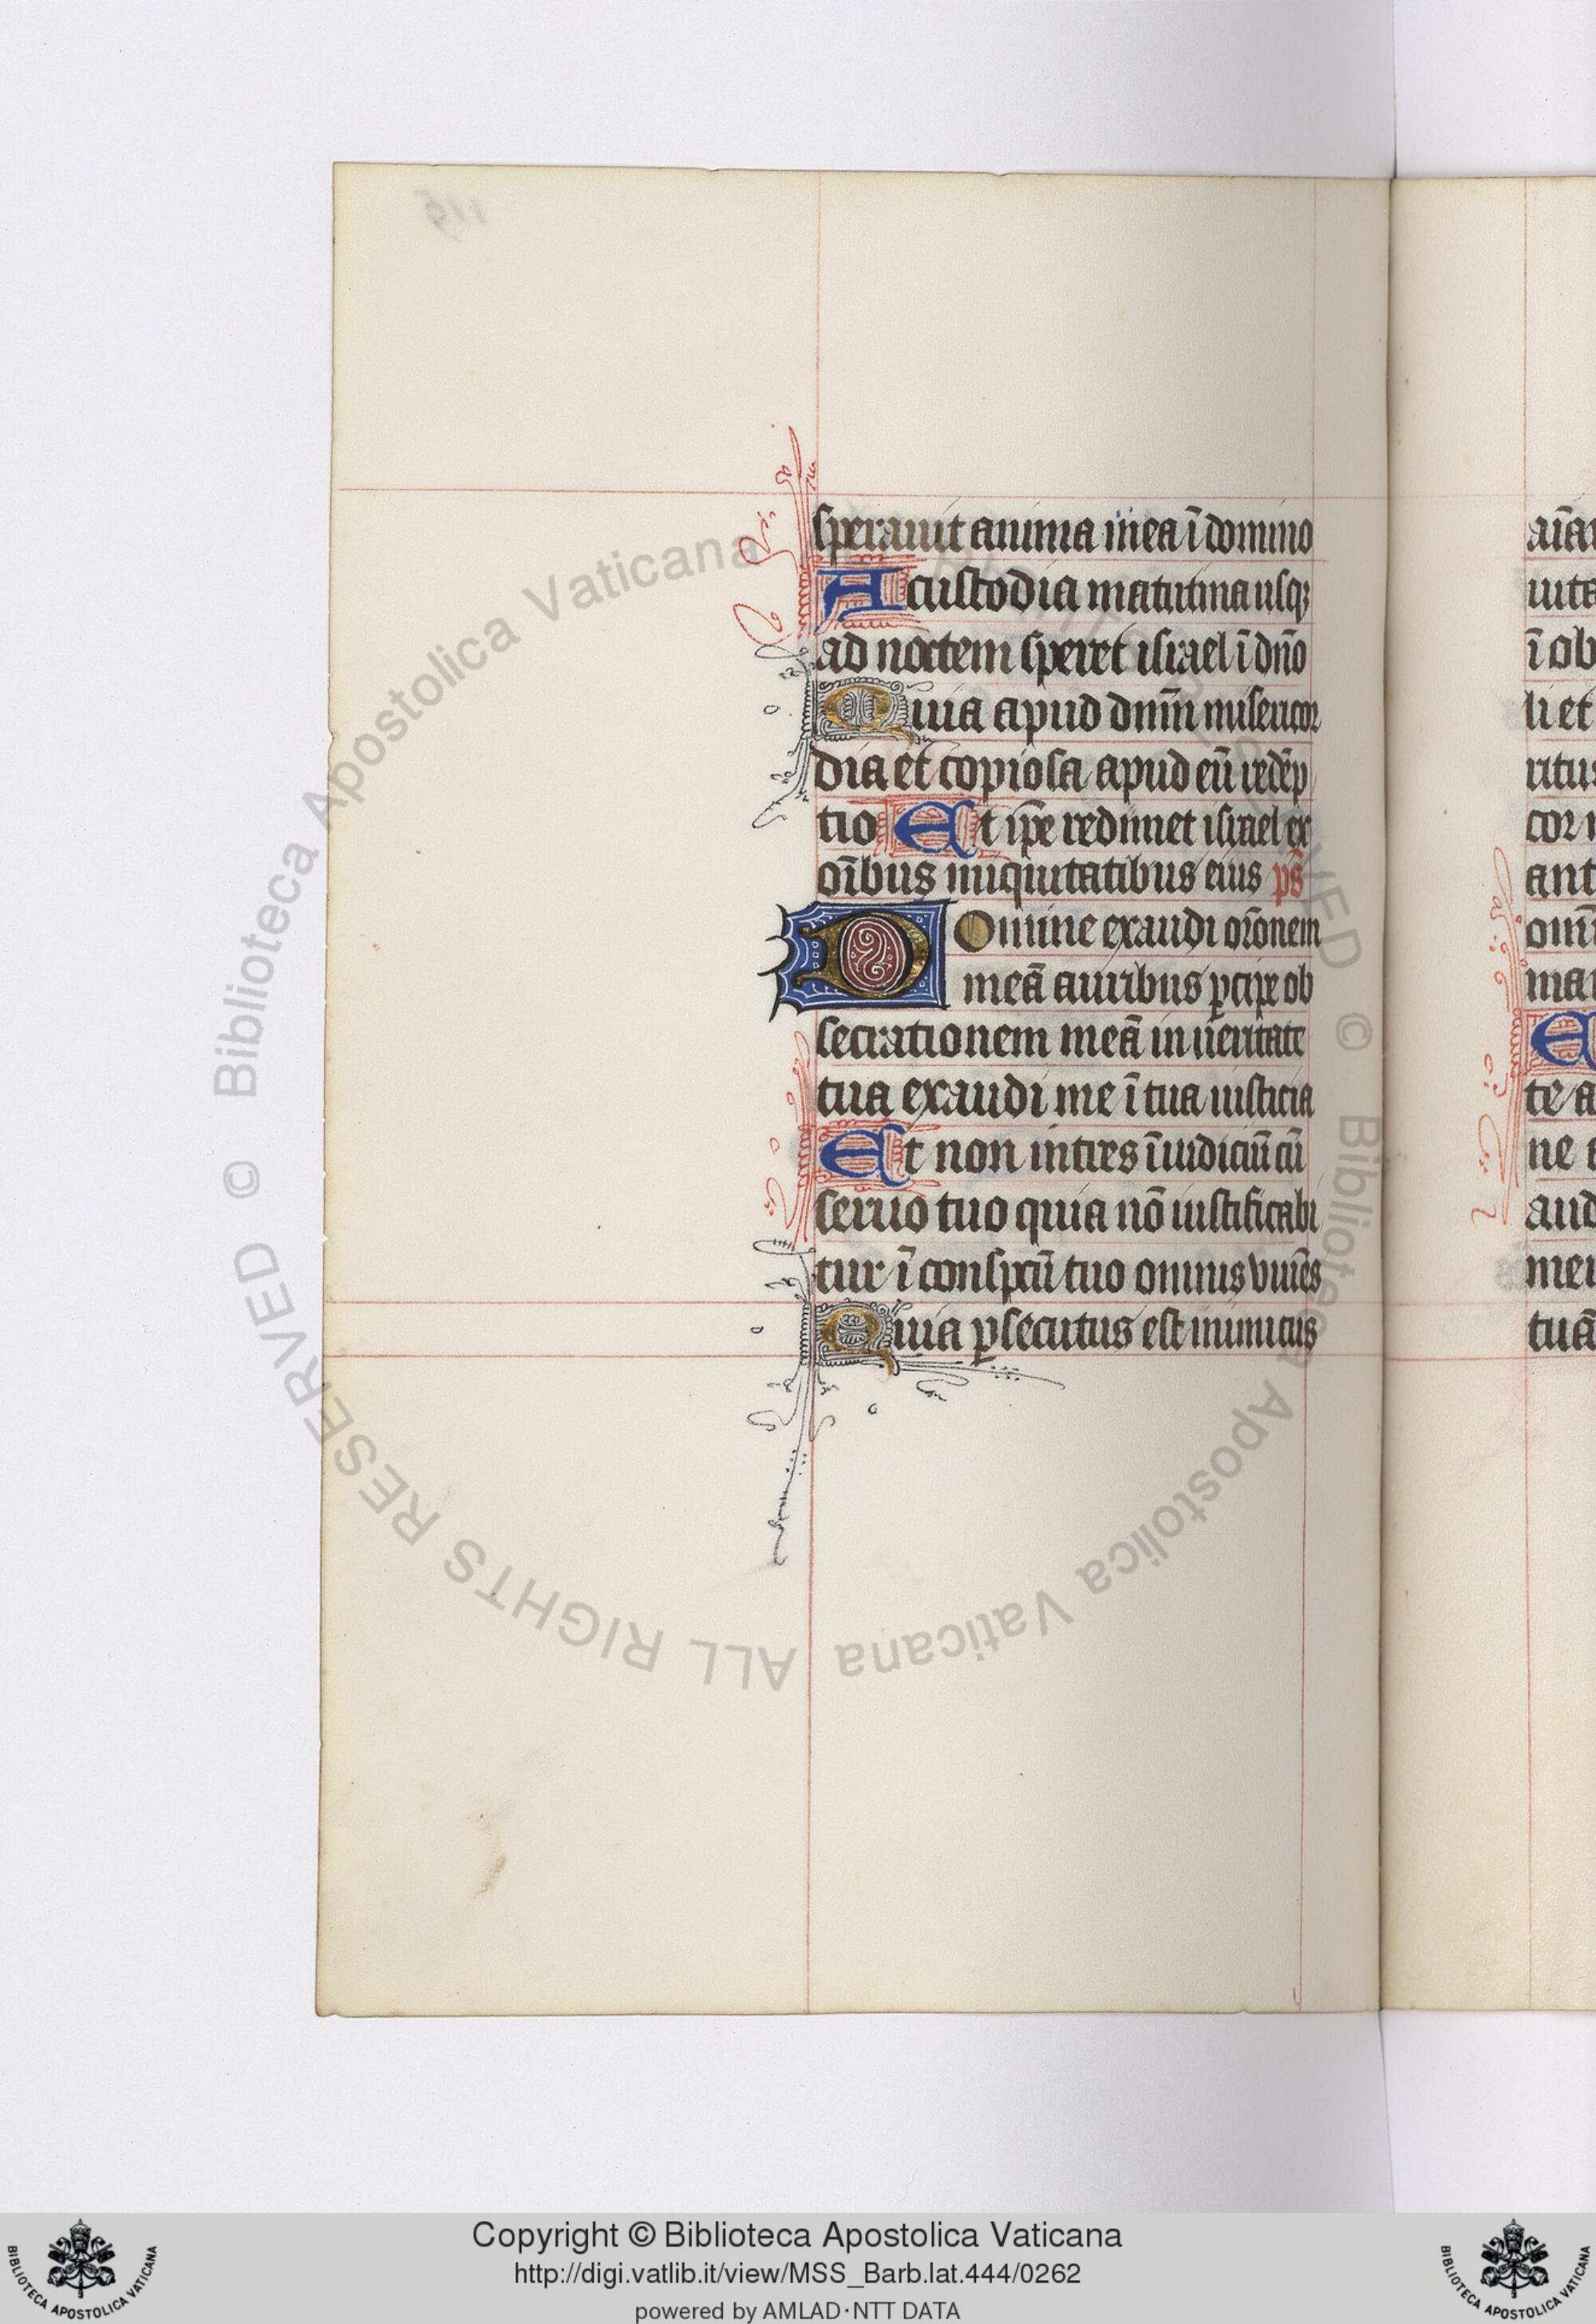 sperauit anima mea ī domino
A custodia matutina usqꝫ
ad noctem speret israel ī dño
Quia apud dnm̄ misericor
dia et copiosa apud eū redēp
tio Et ip̄e redimet israel ex
oībus iniquitatibus eius ps̄
Domine exaudi or̄onem
meā auribus ꝑcipe ob
secrationem meā in ueritate
tua exaudi me ī tua iusticia
Et non intres ī iudiciū cū
seruo tuo quia nō iustificabi
tur ī conspcū tuo omnis viuēs
Quia ꝑsecutus est inimicus
uita
ī ob
li et
ritus
cor
ant
ma
E
te a
ne
aud
mei
tuā
© Biblioteca Apostolica Vaticana
ALL RIGHTS RESERVED
© Biblioteca Apostolica Vaticana
Copyright © Biblioteca Apostolica Vaticana
http://digi.vatlib.it/view/MSS_Barb.lat.444/0262
powered by AMLAD·NTT DATA
BIBLIOTECA APOSTOLICA VATICANA
BIBLIOTECA APOSTOLICA VATICANA